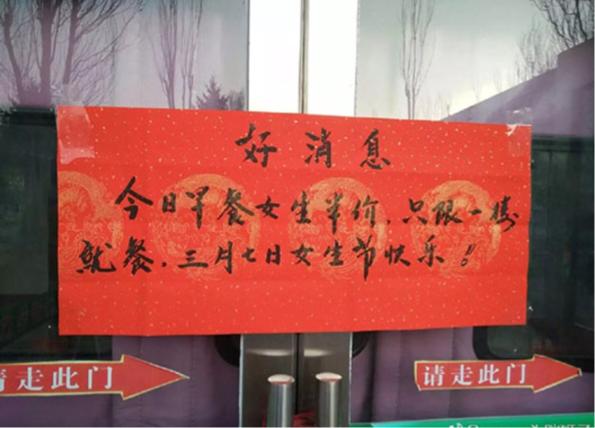 好消息
今日早餐女生半价,只限一楼
就餐,三月七日女生节快乐!
请走此门
请走此门